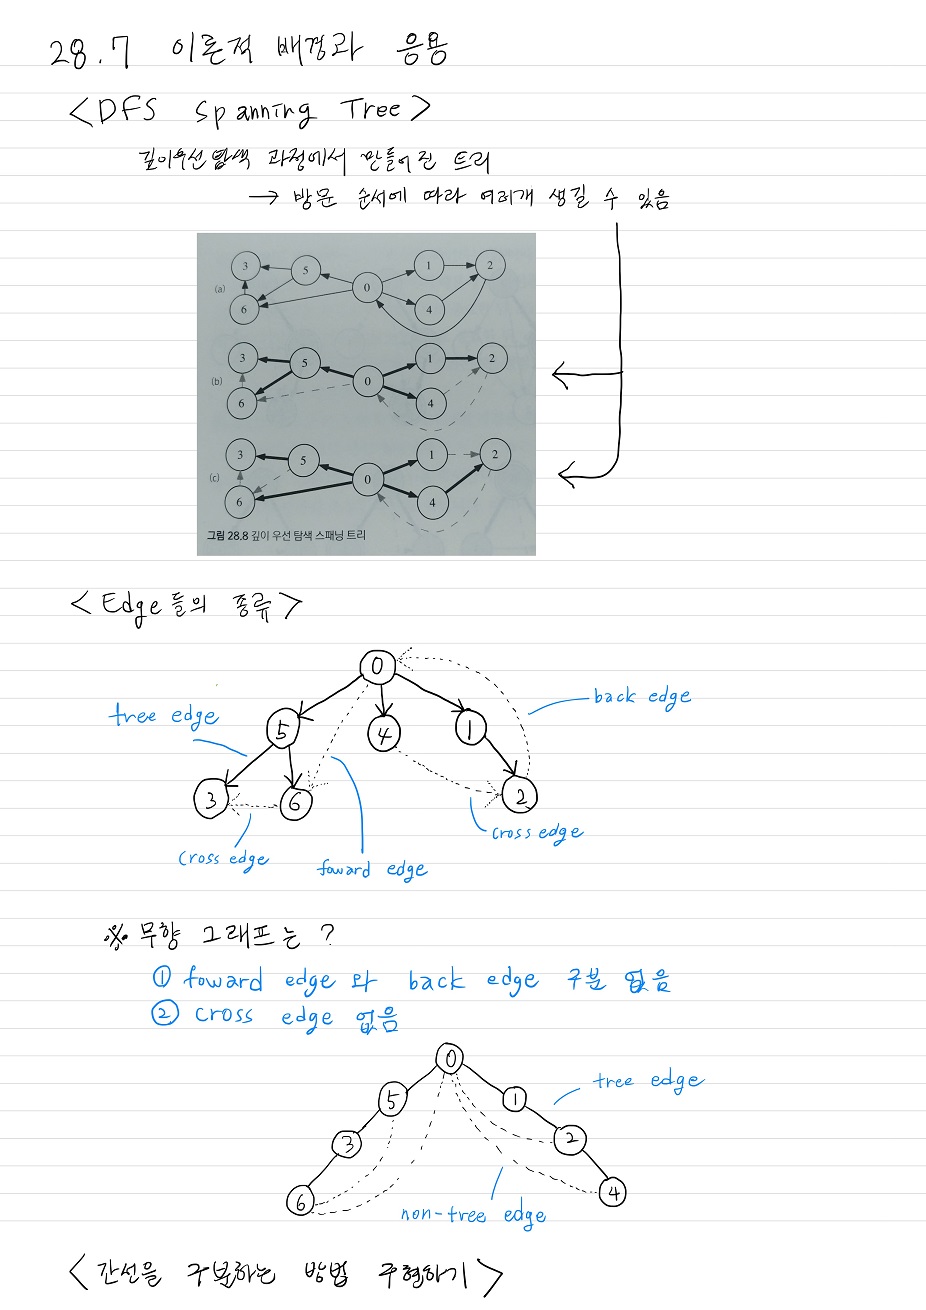 28.7 이론적 배경과 응용
<DFS Spanning Tree>
깊이우선탐색 과정에서 만들어진 트리
→ 방문 순서에 따라 여러개 생길 수 있음
3 5 1 2
(a) 0
6 4
3 5 1 2
(b) 0
6 4
3 5 1 2
(c) 0
6 4
그림 28.8 깊이 우선 탐색 스패닝 트리
<Edge들의 종류>
0
back edge
tree edge
5 4 1
3 6 2
cross edge
cross edge
foward edge
※ 무향 그래프는?
① foward edge 와 back edge 구분 없음
② cross edge 없음
0
tree edge
5 1
3 2
6 4
non-tree edge
<간선을 구분하는 방법 구현하기>